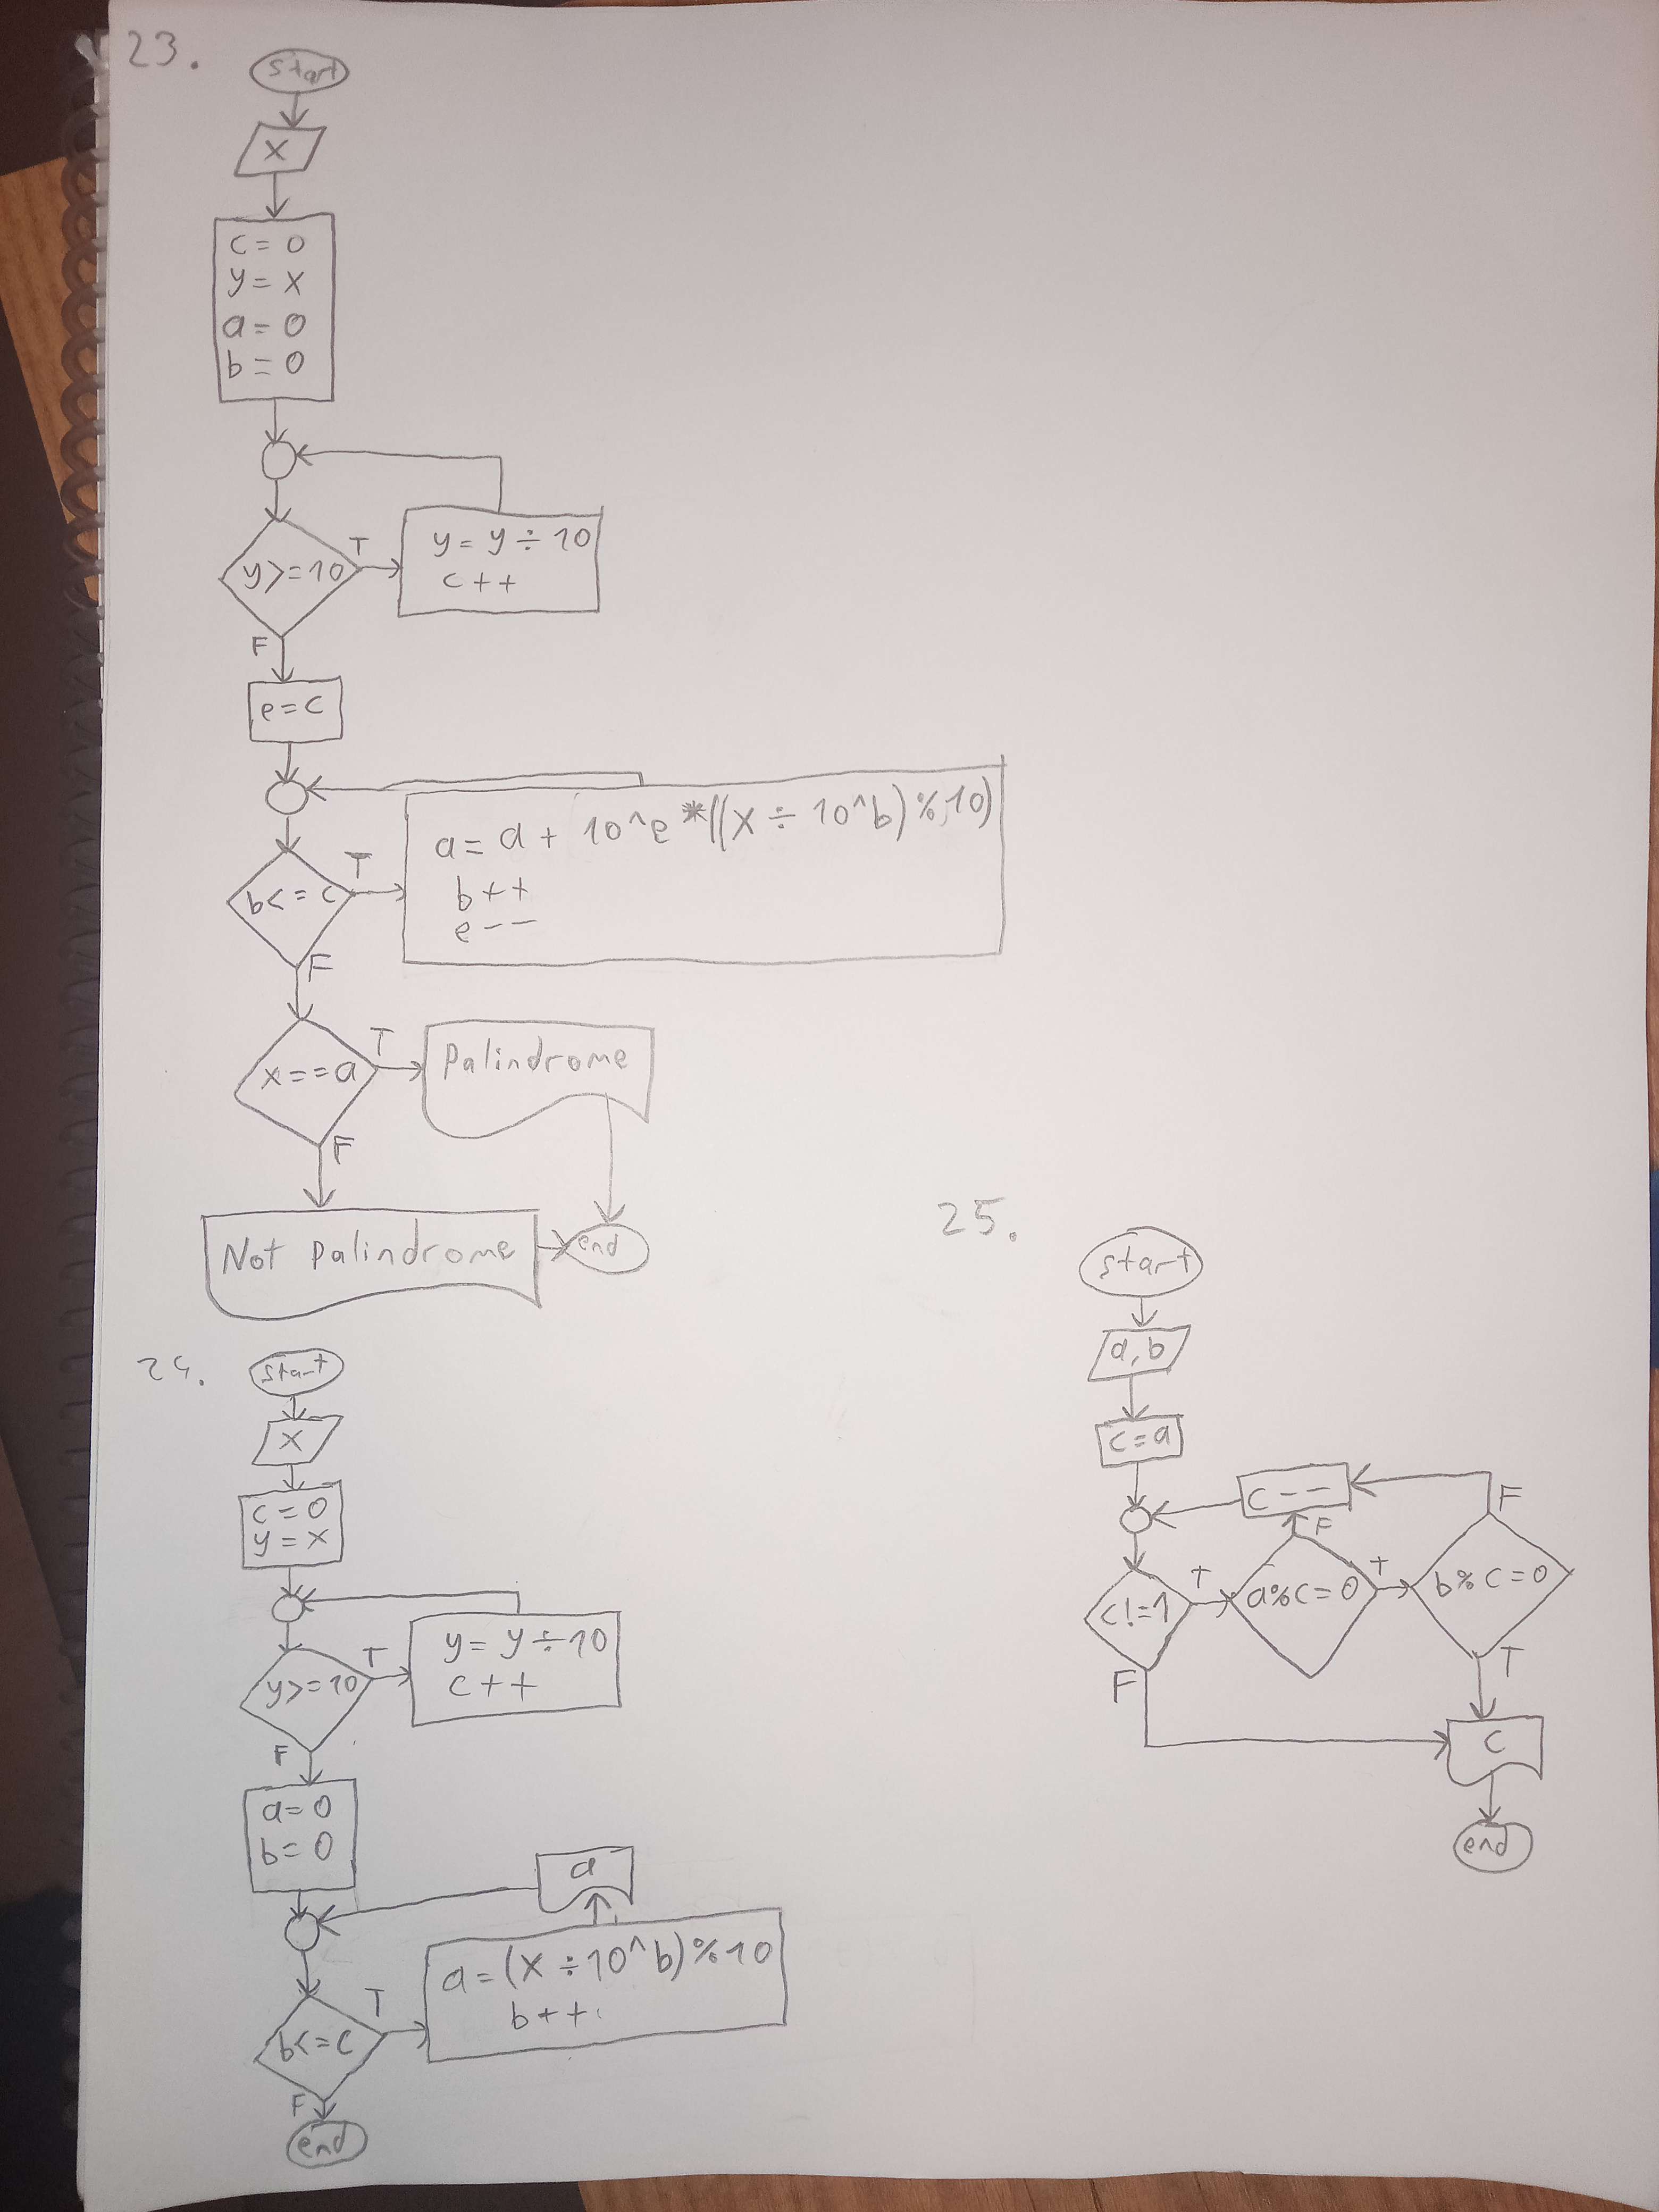 23.
start
x
c = 0
y = x
a = 0
b = 0
y>=10
T
y = y ÷ 10
c++
F
e=c
b<=c
T
a = a + 10^e*((x ÷ 10^b)%10)
b++
e--
F
x==a
T
Palindrome
F
Not palindrome
end
24.
start
x
c=0
y=x
y>=10
T
y= y ÷10
c++
F
a=0
b=0
a
b<=c
T
a=(x ÷10^b)%10
b++
F
end
25.
start
a,b
c=a
c--
c!=1
T
a%c=0
F
T
b%c=0
F
T
F
c
end